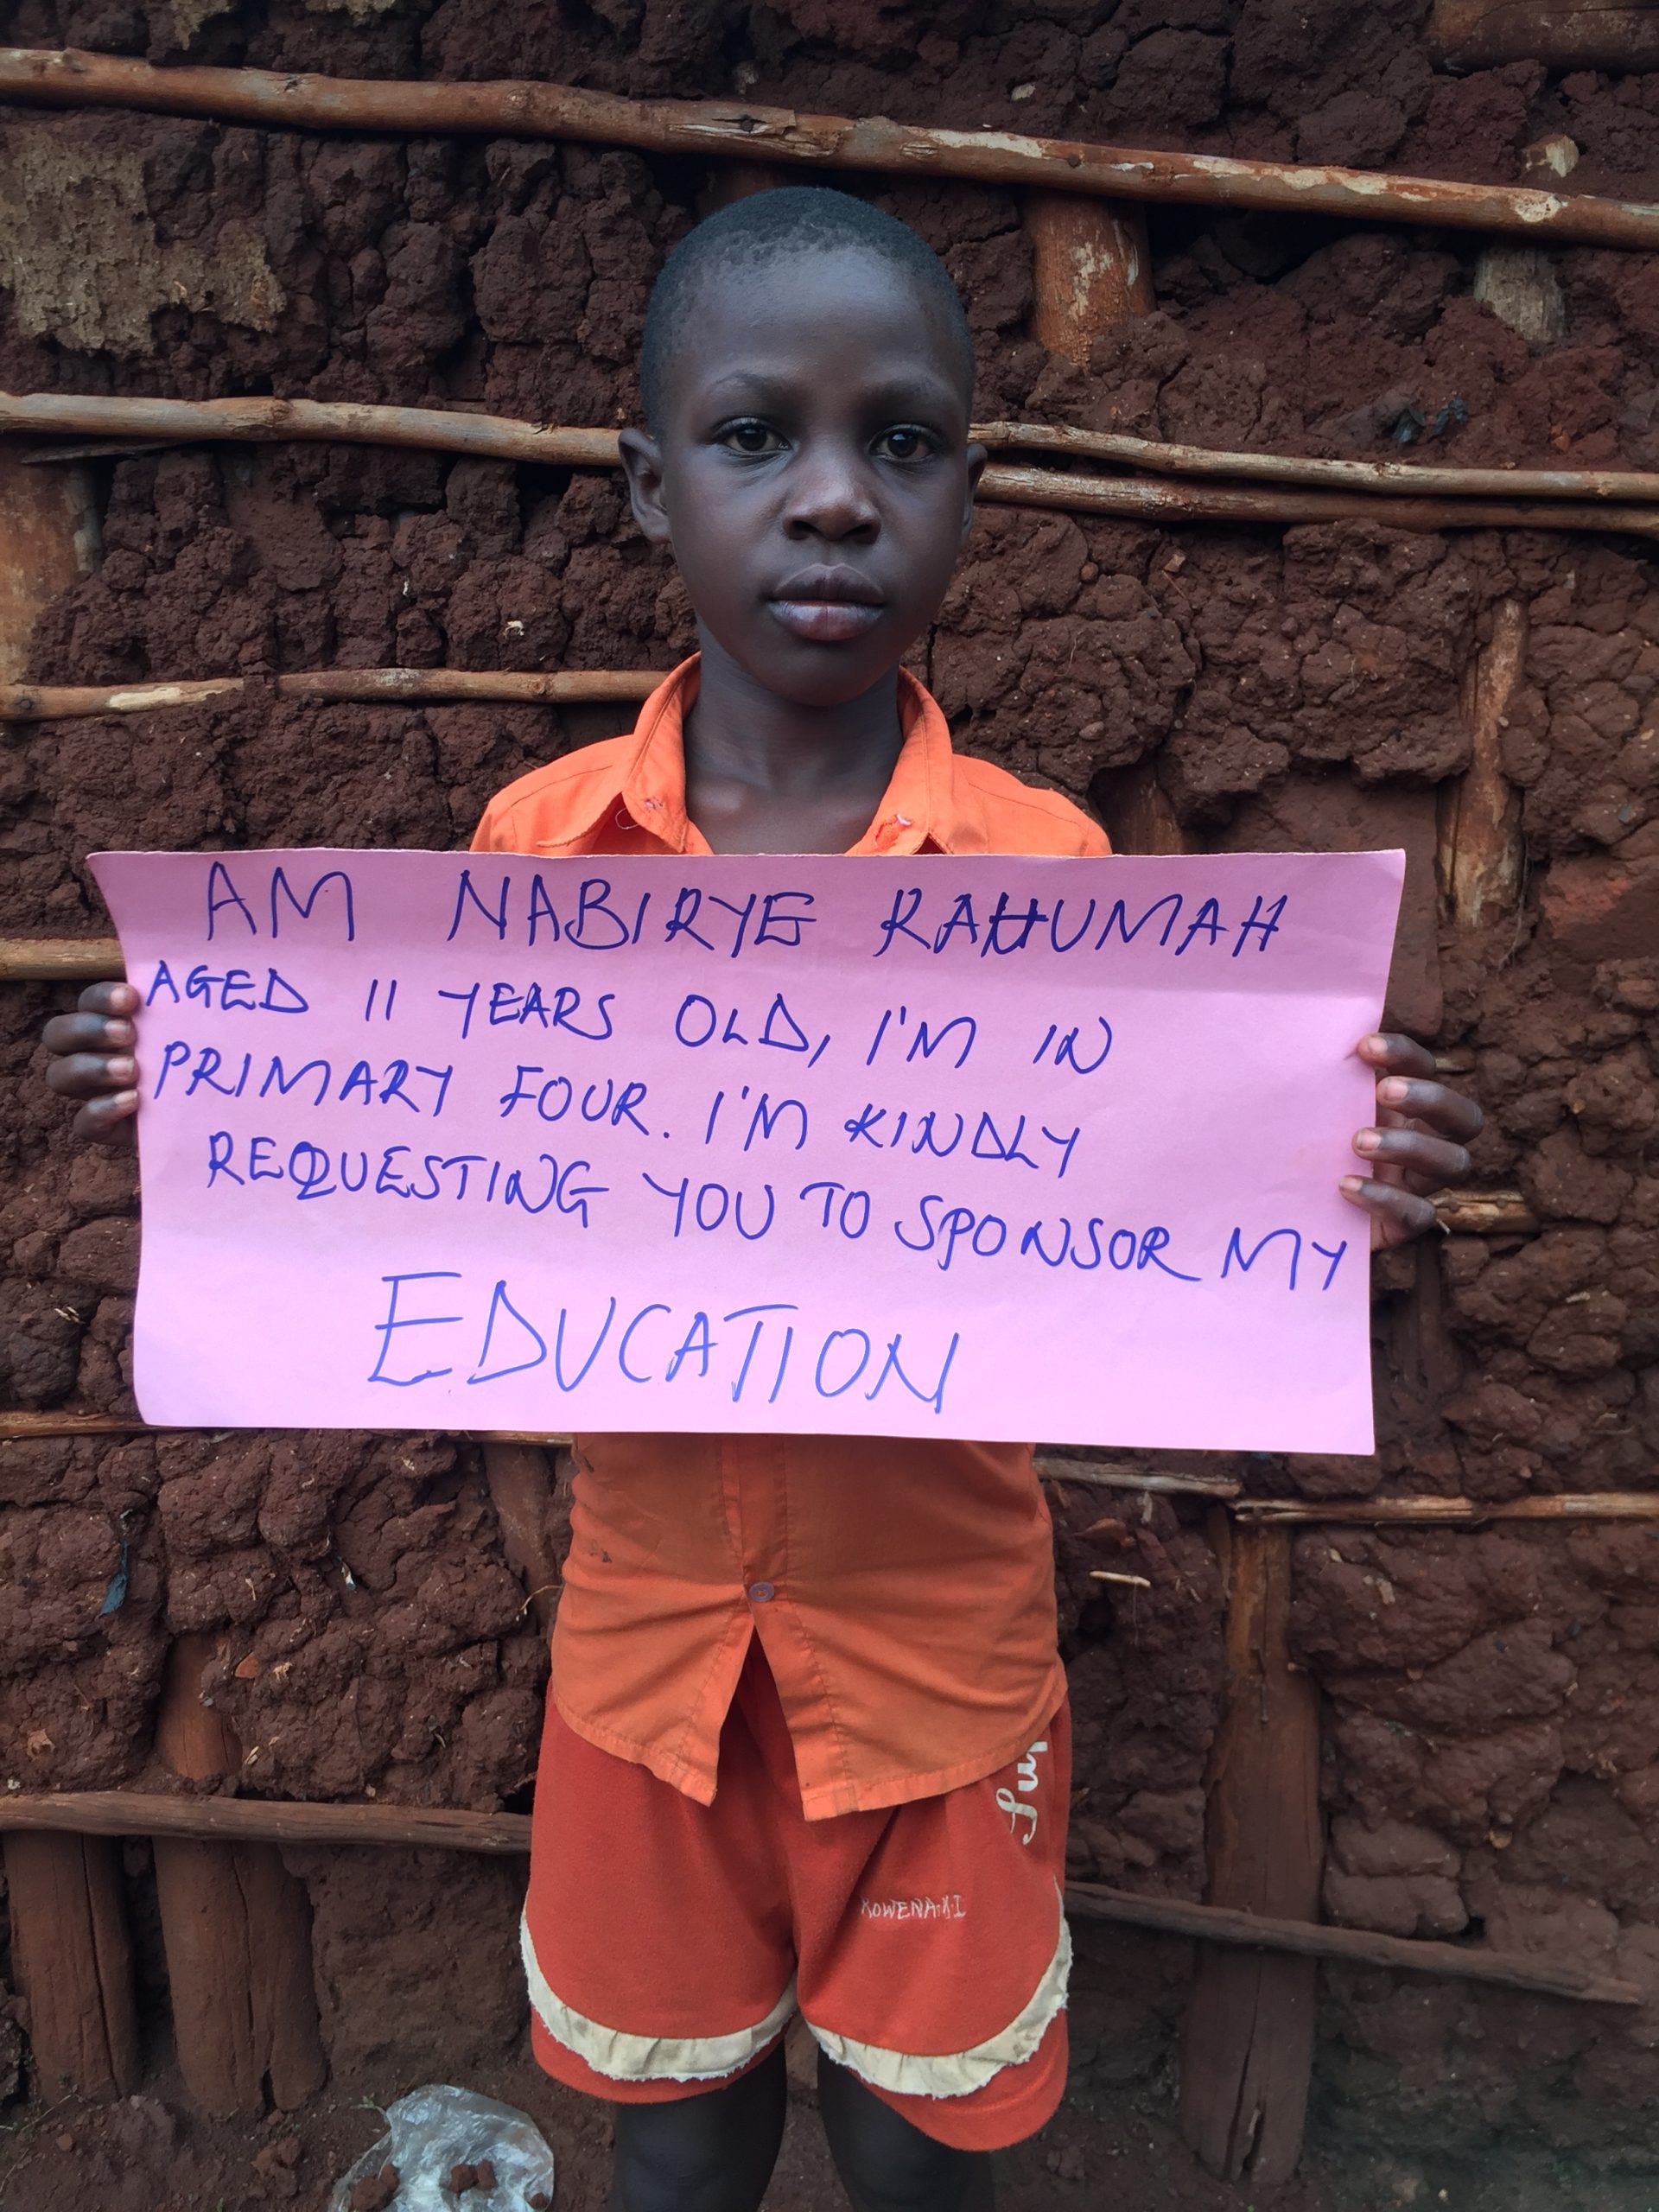 AM NABIRYE RAHUMAH
AGED 11 YEARS OLD, I'M IN
PRIMARY FOUR. I'M KINDLY
REQUESTING YOU TO SPONSOR MY
EDUCATION